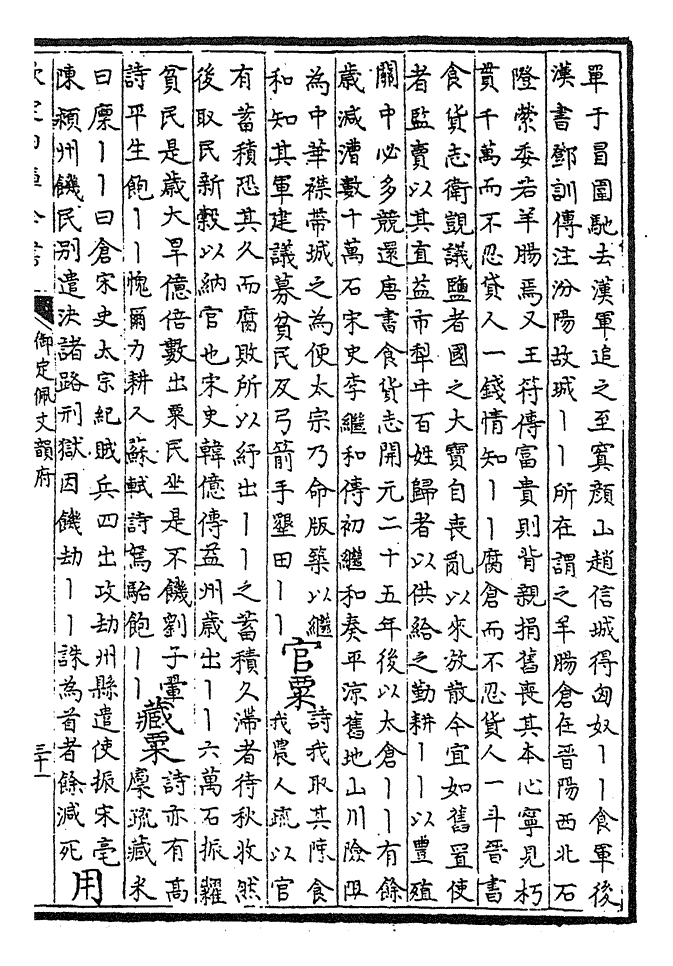 單于冒圍馳去漢軍追之至寘顔山趙信城得匈奴丨丨食軍後
漢書鄧訓傳注汾陽故城丨丨所在謂之羊腸倉在晉陽西北石
隥縈委若羊腸焉又王符傳富貴則背親捐舊喪其本心寧見朽
貫千萬而不忍貸人一錢情知丨丨腐倉而不忍貸人一斗晉書
食貨志衛覬議鹽者國之大寶自喪亂以來放散今宜如舊置使
者監賣以其直益市犂牛百姓歸者以供給之勤耕丨丨以豐殖
關中必多競還唐書食貨志開元二十五年後以太倉丨丨有餘
歲減漕數十萬石宋史李繼和傳初繼和奏平涼舊地山川險阻
為中華襟帶城之為便太宗乃命版築以繼
和知其軍建議募貧民及弓箭手墾田丨丨
官粟
詩我取其陳食
我農人疏以官
有蓄積恐其久而腐敗所以紓出丨丨之蓄積久滯者待秋收然
後取民新穀以納官也宋史韓億傳益州歲出丨丨六萬石振糶
貧民是歲大旱億倍數出粟民坐是不饑劉子翬
詩平生飽丨丨愧爾力耕人蘇軾詩駑駘飽丨丨
藏粟
詩亦有高
廩疏藏米
曰廩丨丨曰倉宋史太宗紀賊兵四出攻劫州縣遣使振宋亳
陳潁州饑民别遣決諸路刑獄因饑劫丨丨誅為首者餘減死
用
欽定四庫全書
御定佩文韻府
三十一